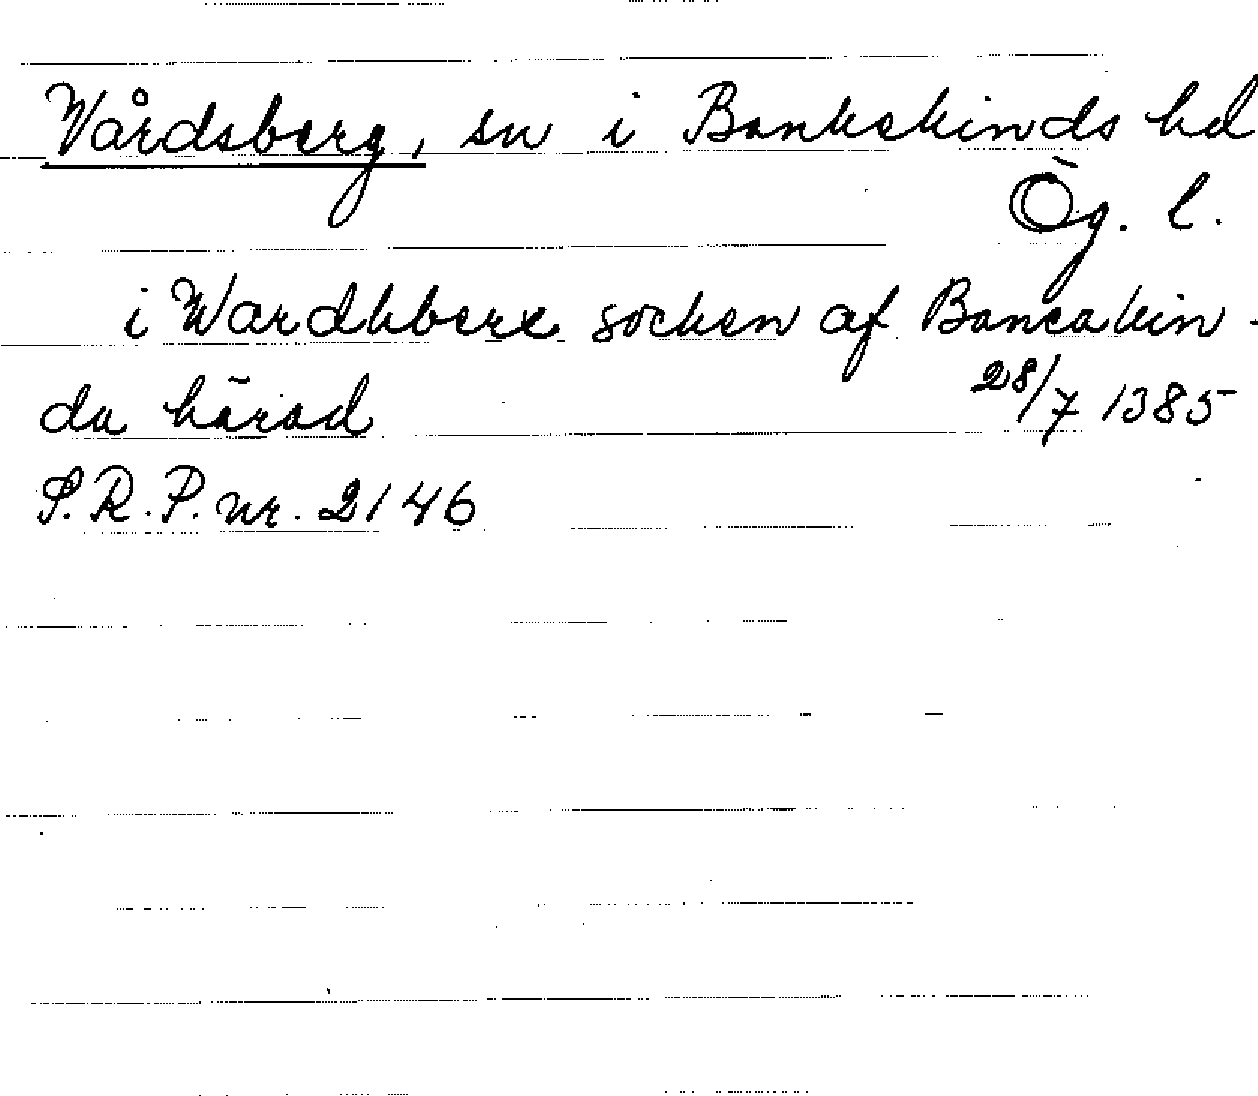 Vårdsberg, sn i Bankekinds hd
Ög. l.
i Wardhberx socken af Bancakin-
da härad 28/7 1385
S.R.P. nr. 2146